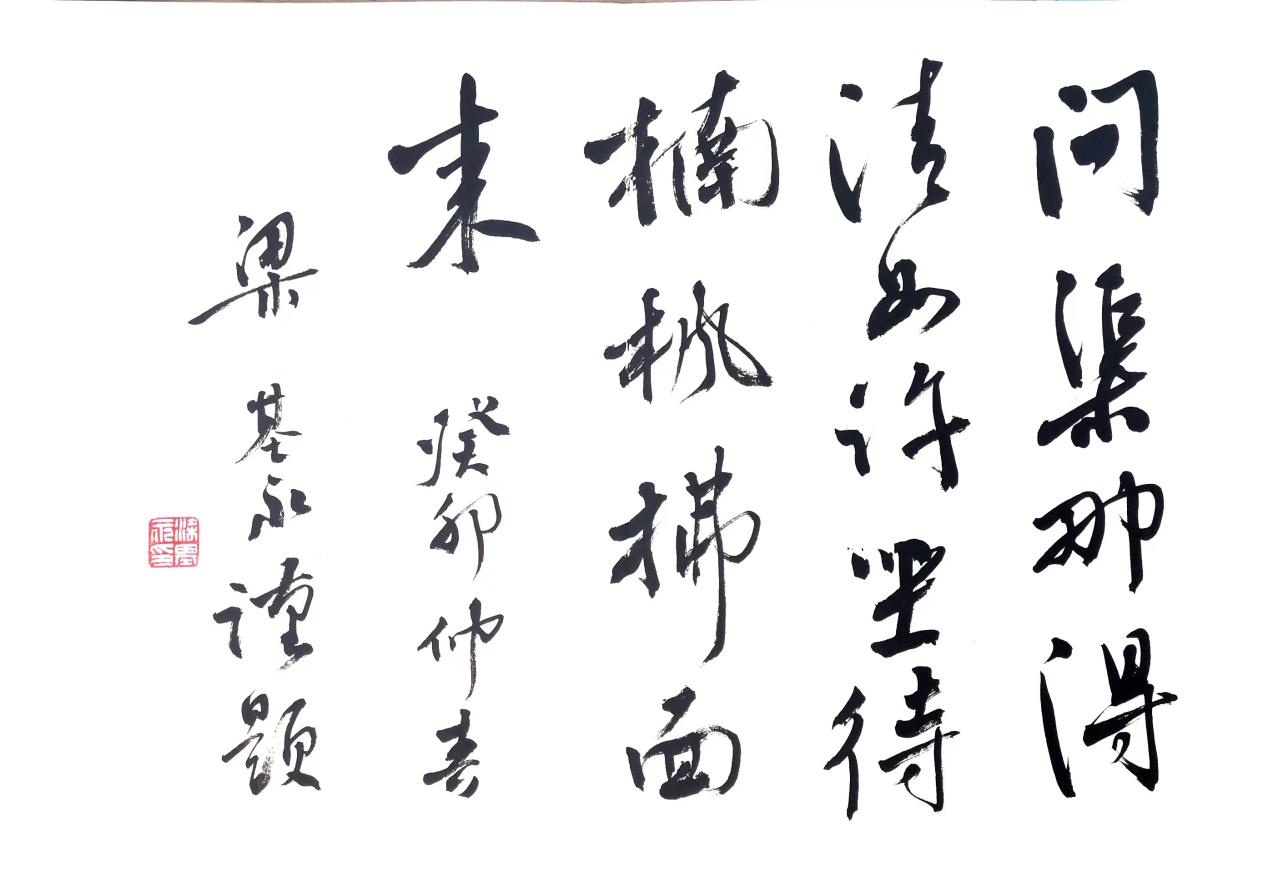 问渠那得
清如许坐待
楠枫拂面
来 癸卯仲春
梁基永谨题
梁基永印